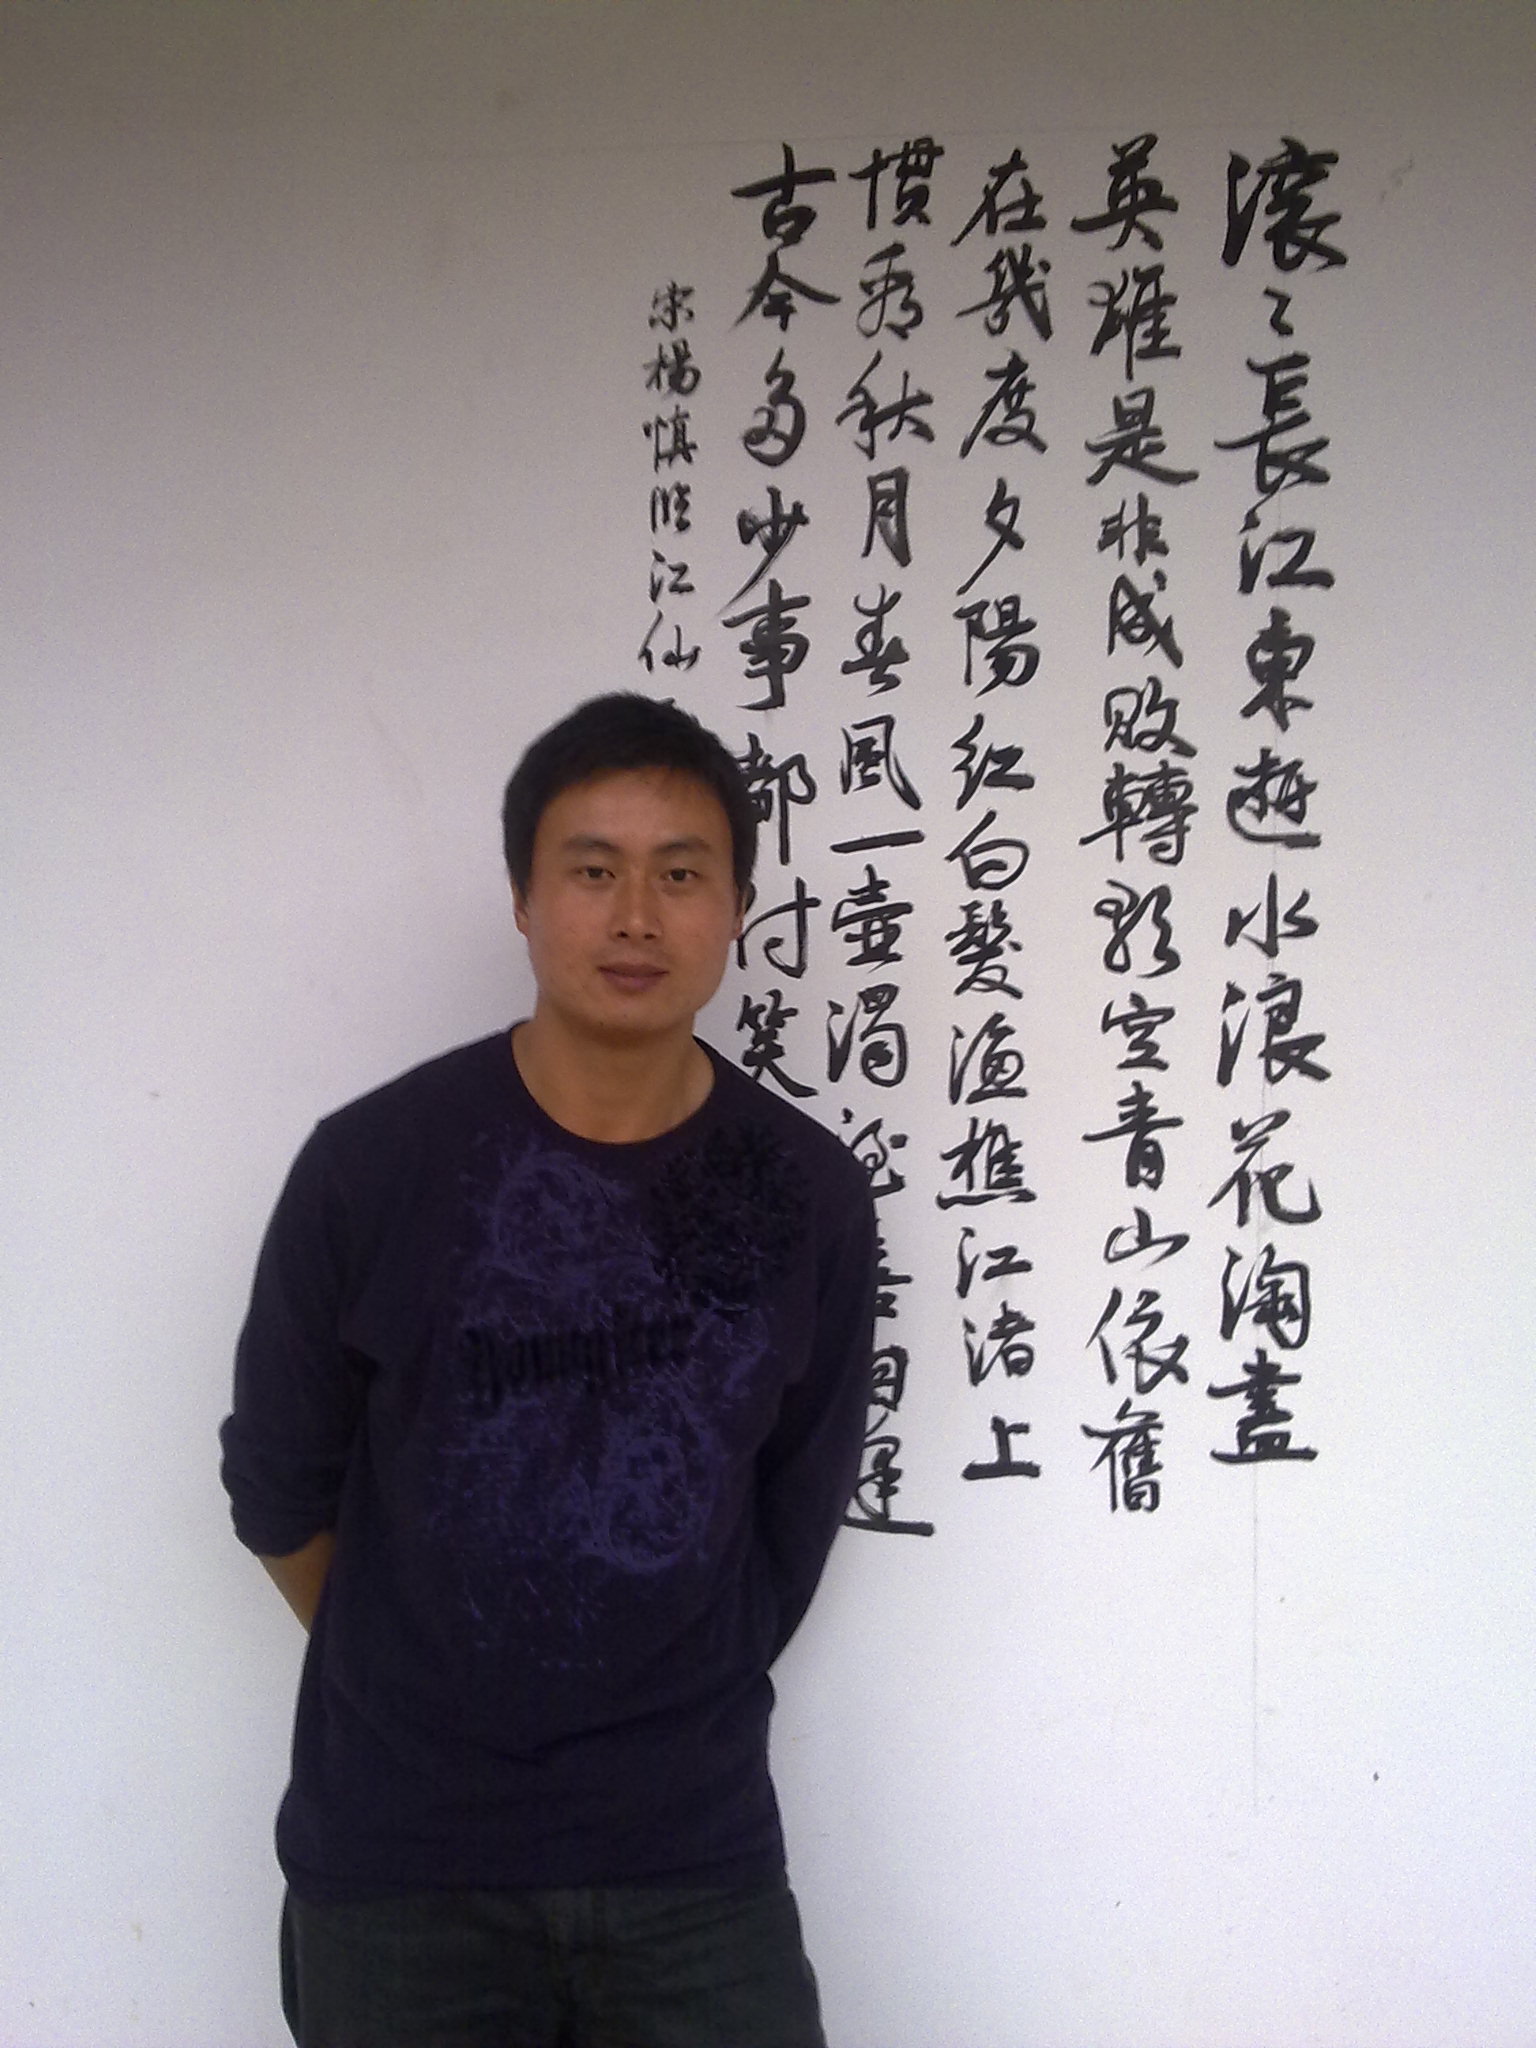 滚〻長江東逝水浪花淘盡
英雄是非成敗轉頭空青山依舊
在幾度夕陽红白髮漁樵江渚上
惯看秋月春風一壺濁酒喜相逢
古今多少事都付笑
宋楊慎臨江仙